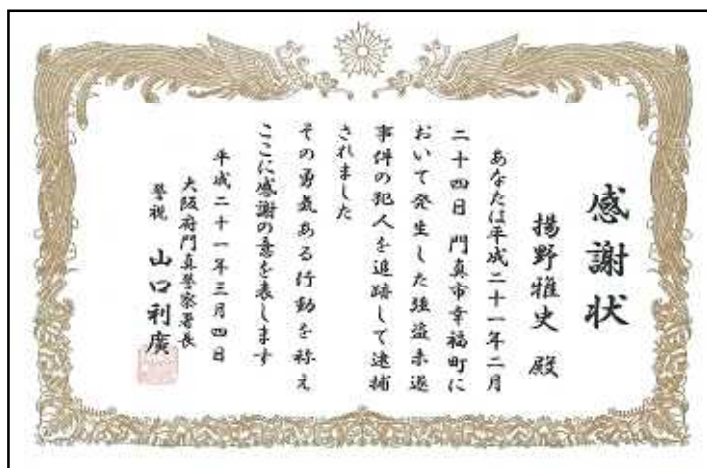 感謝状
揚野雅史 殿
あなたは平成二十一年二月
二十四日 門真市幸福町に
おいて発生した強盗未遂
事件の犯人を追跡して逮捕
されました
その勇気ある行動を称え
ここに感謝の意を表します
平成二十一年三月四日
大阪府門真警察署長
警視 山口利廣